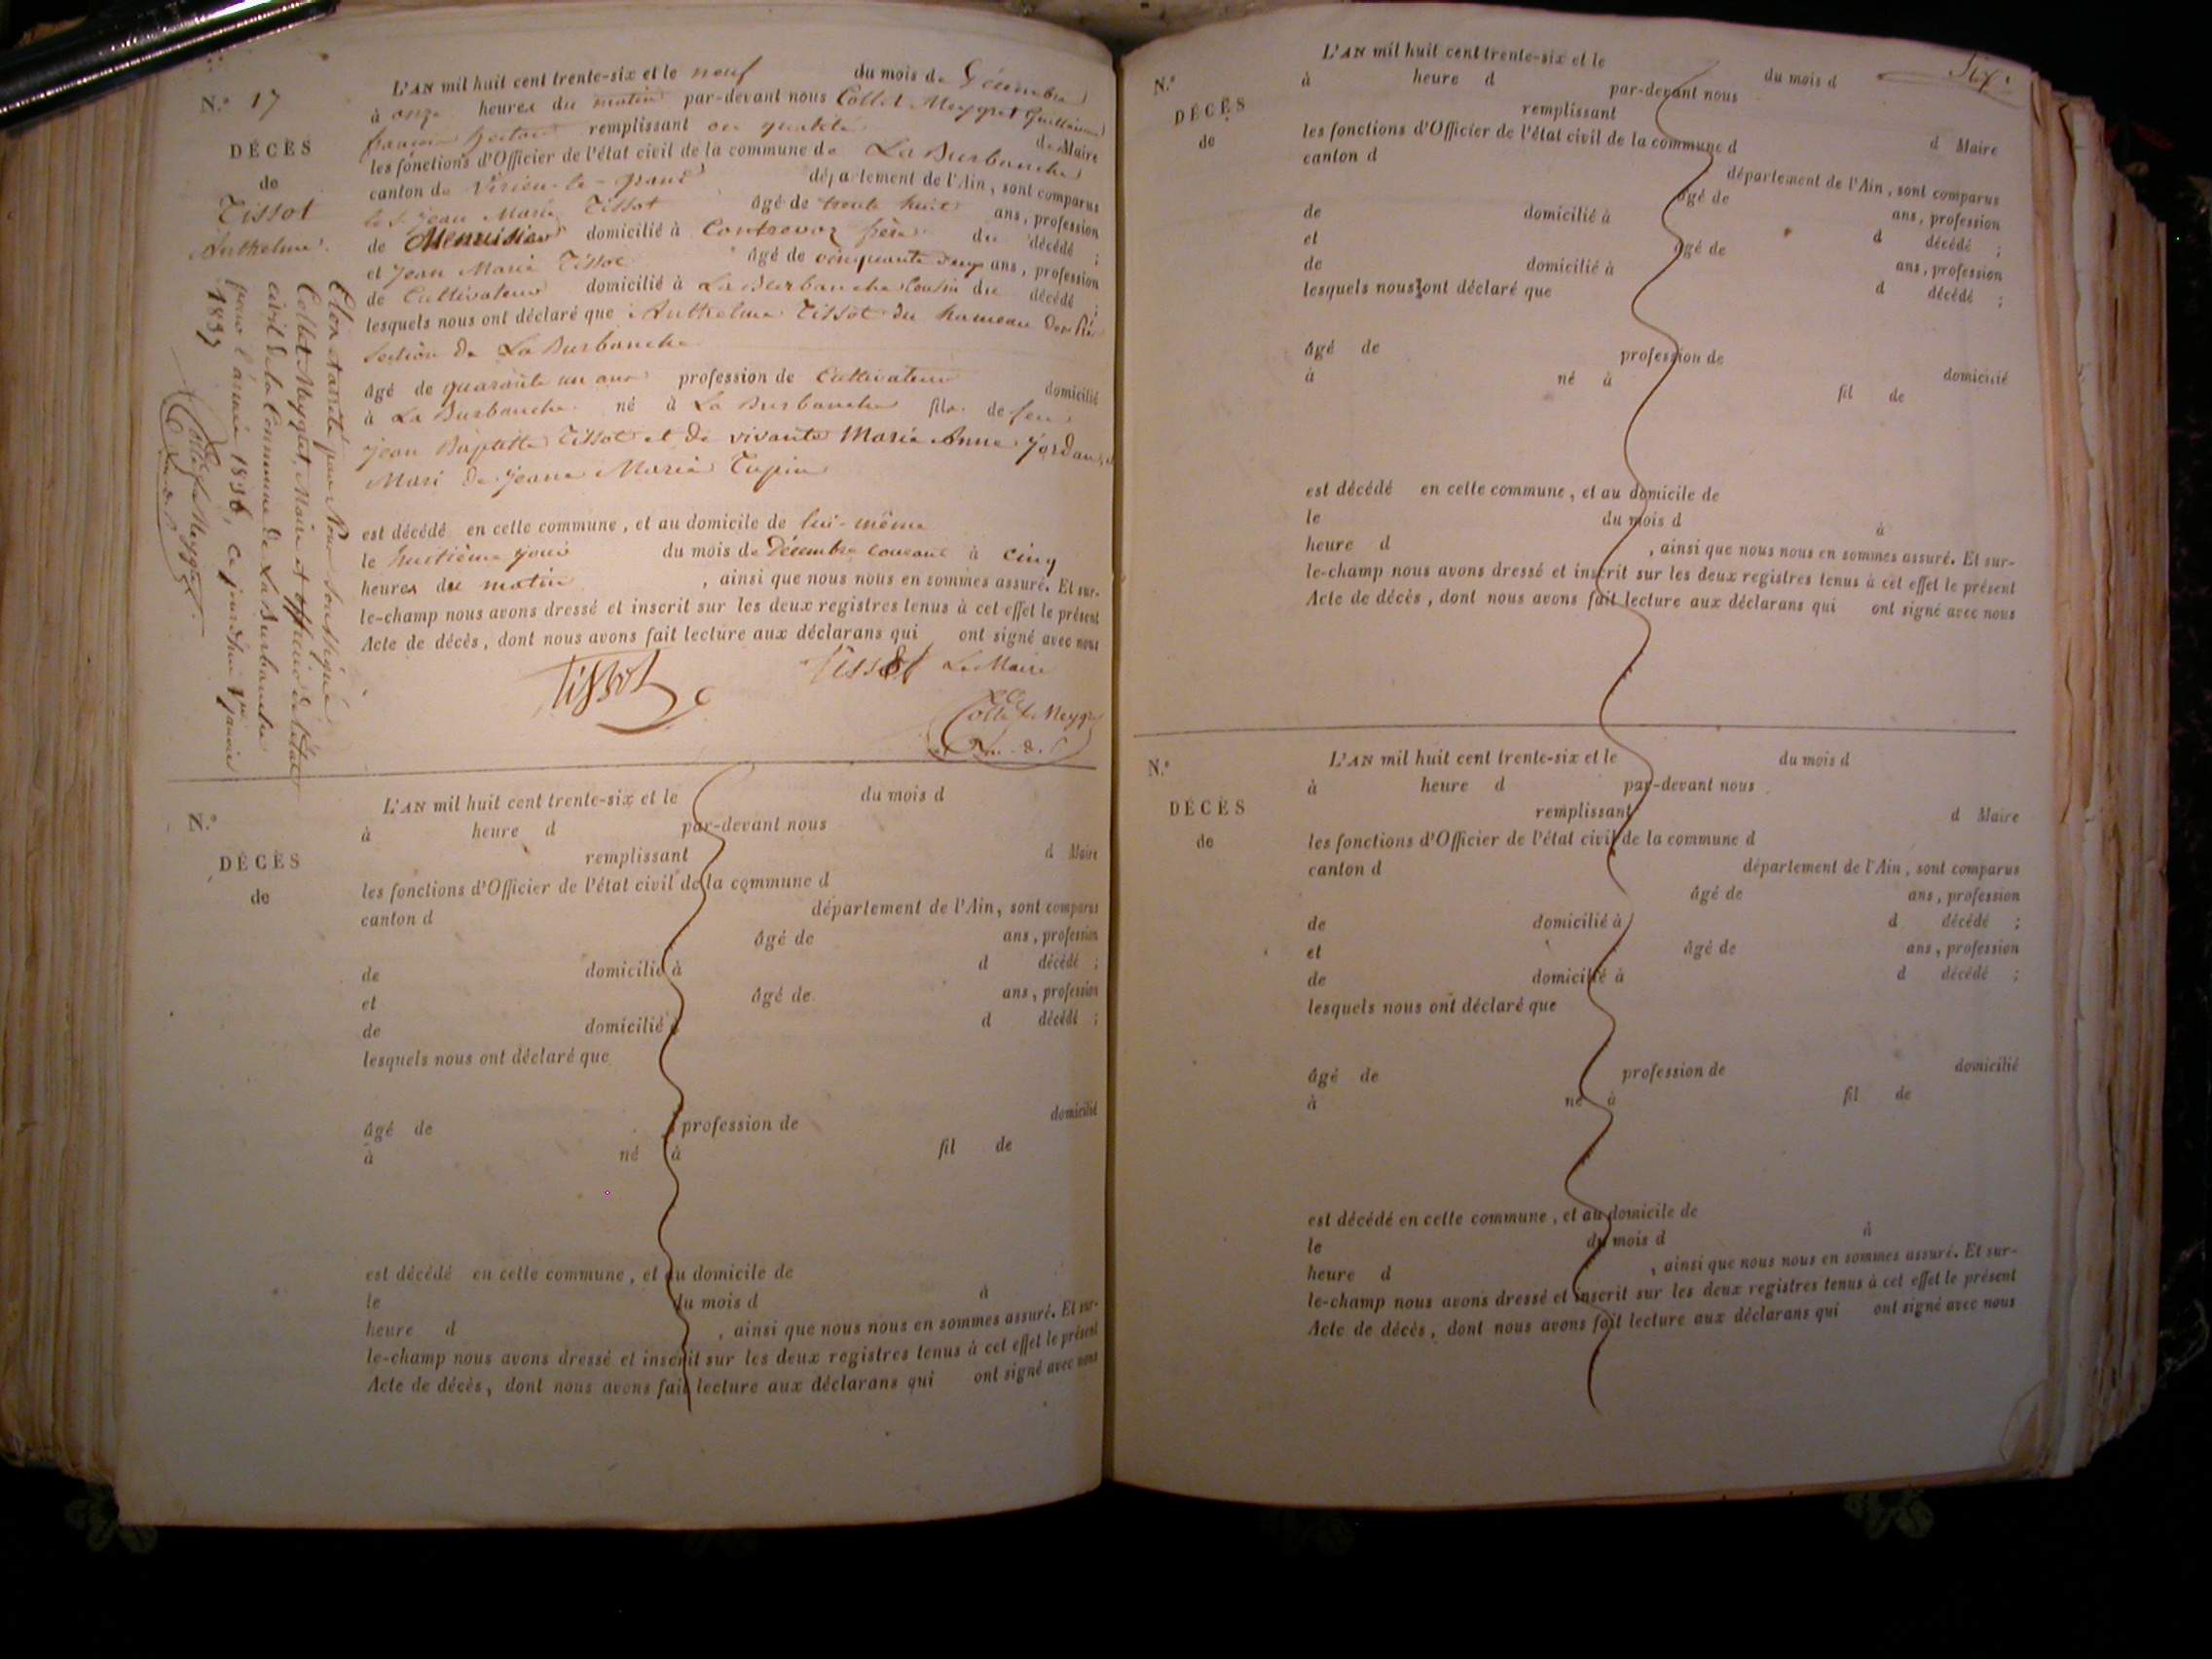 N.° 17
DÉCÈS
de
Tissot
Anthelme.
L'AN mil huit cent trente-six et le neuf du mois de Décembre
à onze heures du matin par-devant nous Collet Meygret Guillaume
françois remplissant en qualité de Maire
les fonctions d'Officier de l'état civil de la commune de La Burbanche
canton de Virieu-le-grand département de l'Ain, sont comparus
le S. Jean Marie Tissot âgé de trente huit ans, profession
de Menuisier domicilié à Contrevoz frère du décédé ;
et Jean Marie Tissot âgé de cinquante deux ans, profession
de Cultivateur domicilié à La Burbanche Cousin du décédé ;
lesquels nous ont déclaré que Anthelme Tissot du hameau
section de La Burbanche
âgé de quarante un ans profession de Cultivateur domicilié
à La Burbanche né à La Burbanche fils de feu
Jean Baptiste Tissot et de vivante Marie Anne Jordan
Mari de Jeane Marie Tupin
est décédé en cette commune, et au domicile de lui-même
le huitième jour du mois de Décembre courant à cinq
heures du matin, ainsi que nous nous en sommes assuré. Et sur-
le-champ nous avons dressé et inscrit sur les deux registres tenus à cet effet le présent
Acte de décès, dont nous avons fait lecture aux déclarans qui ont signé avec nous
Tissot Tissot Le Maire
Collet Meygret
Clos et arrêté par Nous soussigné
Collet Meygret, Maire et officier de l'état
civil de la Commune de La Burbanche
pour l'année 1836, ce jourd'hui 1er janvier
1837
Collet Meygret
N.°
DÉCÈS
de
L'AN mil huit cent trente-six et le du mois d
à heure d par-devant nous
remplissant d Maire
les fonctions d'Officier de l'état civil de la commune d
canton d département de l'Ain, sont comparus
âgé de ans, profession
de domicilié à d décédé ;
et âgé de ans, profession
de domicilié à d décédé ;
lesquels nous ont déclaré que
âgé de profession de domicilié
à né à fil de
est décédé en cette commune, et au domicile de
le du mois d à
heure d , ainsi que nous nous en sommes assuré. Et sur-
le-champ nous avons dressé et inscrit sur les deux registres tenus à cet effet le présent
Acte de décès, dont nous avons fait lecture aux déclarans qui ont signé avec nous
Six.
N.°
DÉCÈS
de
L'AN mil huit cent trente-six et le du mois d
à heure d par-devant nous
remplissant d Maire
les fonctions d'Officier de l'état civil de la commune d
canton d département de l'Ain, sont comparus
âgé de ans, profession
de domicilié à d décédé ;
et âgé de ans, profession
de domicilié à d décédé ;
lesquels nous ont déclaré que
âgé de profession de domicilié
à né à fil de
est décédé en cette commune, et au domicile de
le du mois d à
heure d , ainsi que nous nous en sommes assuré. Et sur-
le-champ nous avons dressé et inscrit sur les deux registres tenus à cet effet le présent
Acte de décès, dont nous avons fait lecture aux déclarans qui ont signé avec nous
N.°
DÉCÈS
de
L'AN mil huit cent trente-six et le du mois d
à heure d par-devant nous
remplissant d Maire
les fonctions d'Officier de l'état civil de la commune d
canton d département de l'Ain, sont comparus
âgé de ans, profession
de domicilié à d décédé ;
et âgé de ans, profession
de domicilié à d décédé ;
lesquels nous ont déclaré que
âgé de profession de domicilié
à né à fil de
est décédé en cette commune, et au domicile de
le du mois d à
heure d , ainsi que nous nous en sommes assuré. Et sur-
le-champ nous avons dressé et inscrit sur les deux registres tenus à cet effet le présent
Acte de décès, dont nous avons fait lecture aux déclarans qui ont signé avec nous